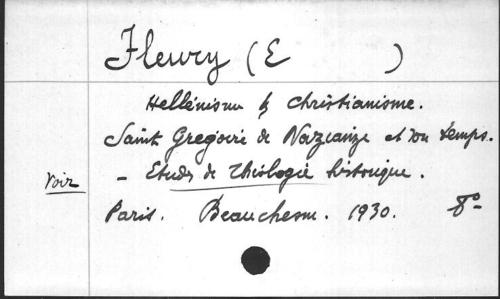 Fleury (E )
Hellénisme & christianisme.
Saint Gregoire de Nazianze et son temps.
- Etudes de Théologie historique.
Voir
Paris. Beauchesne. 1930. 8°